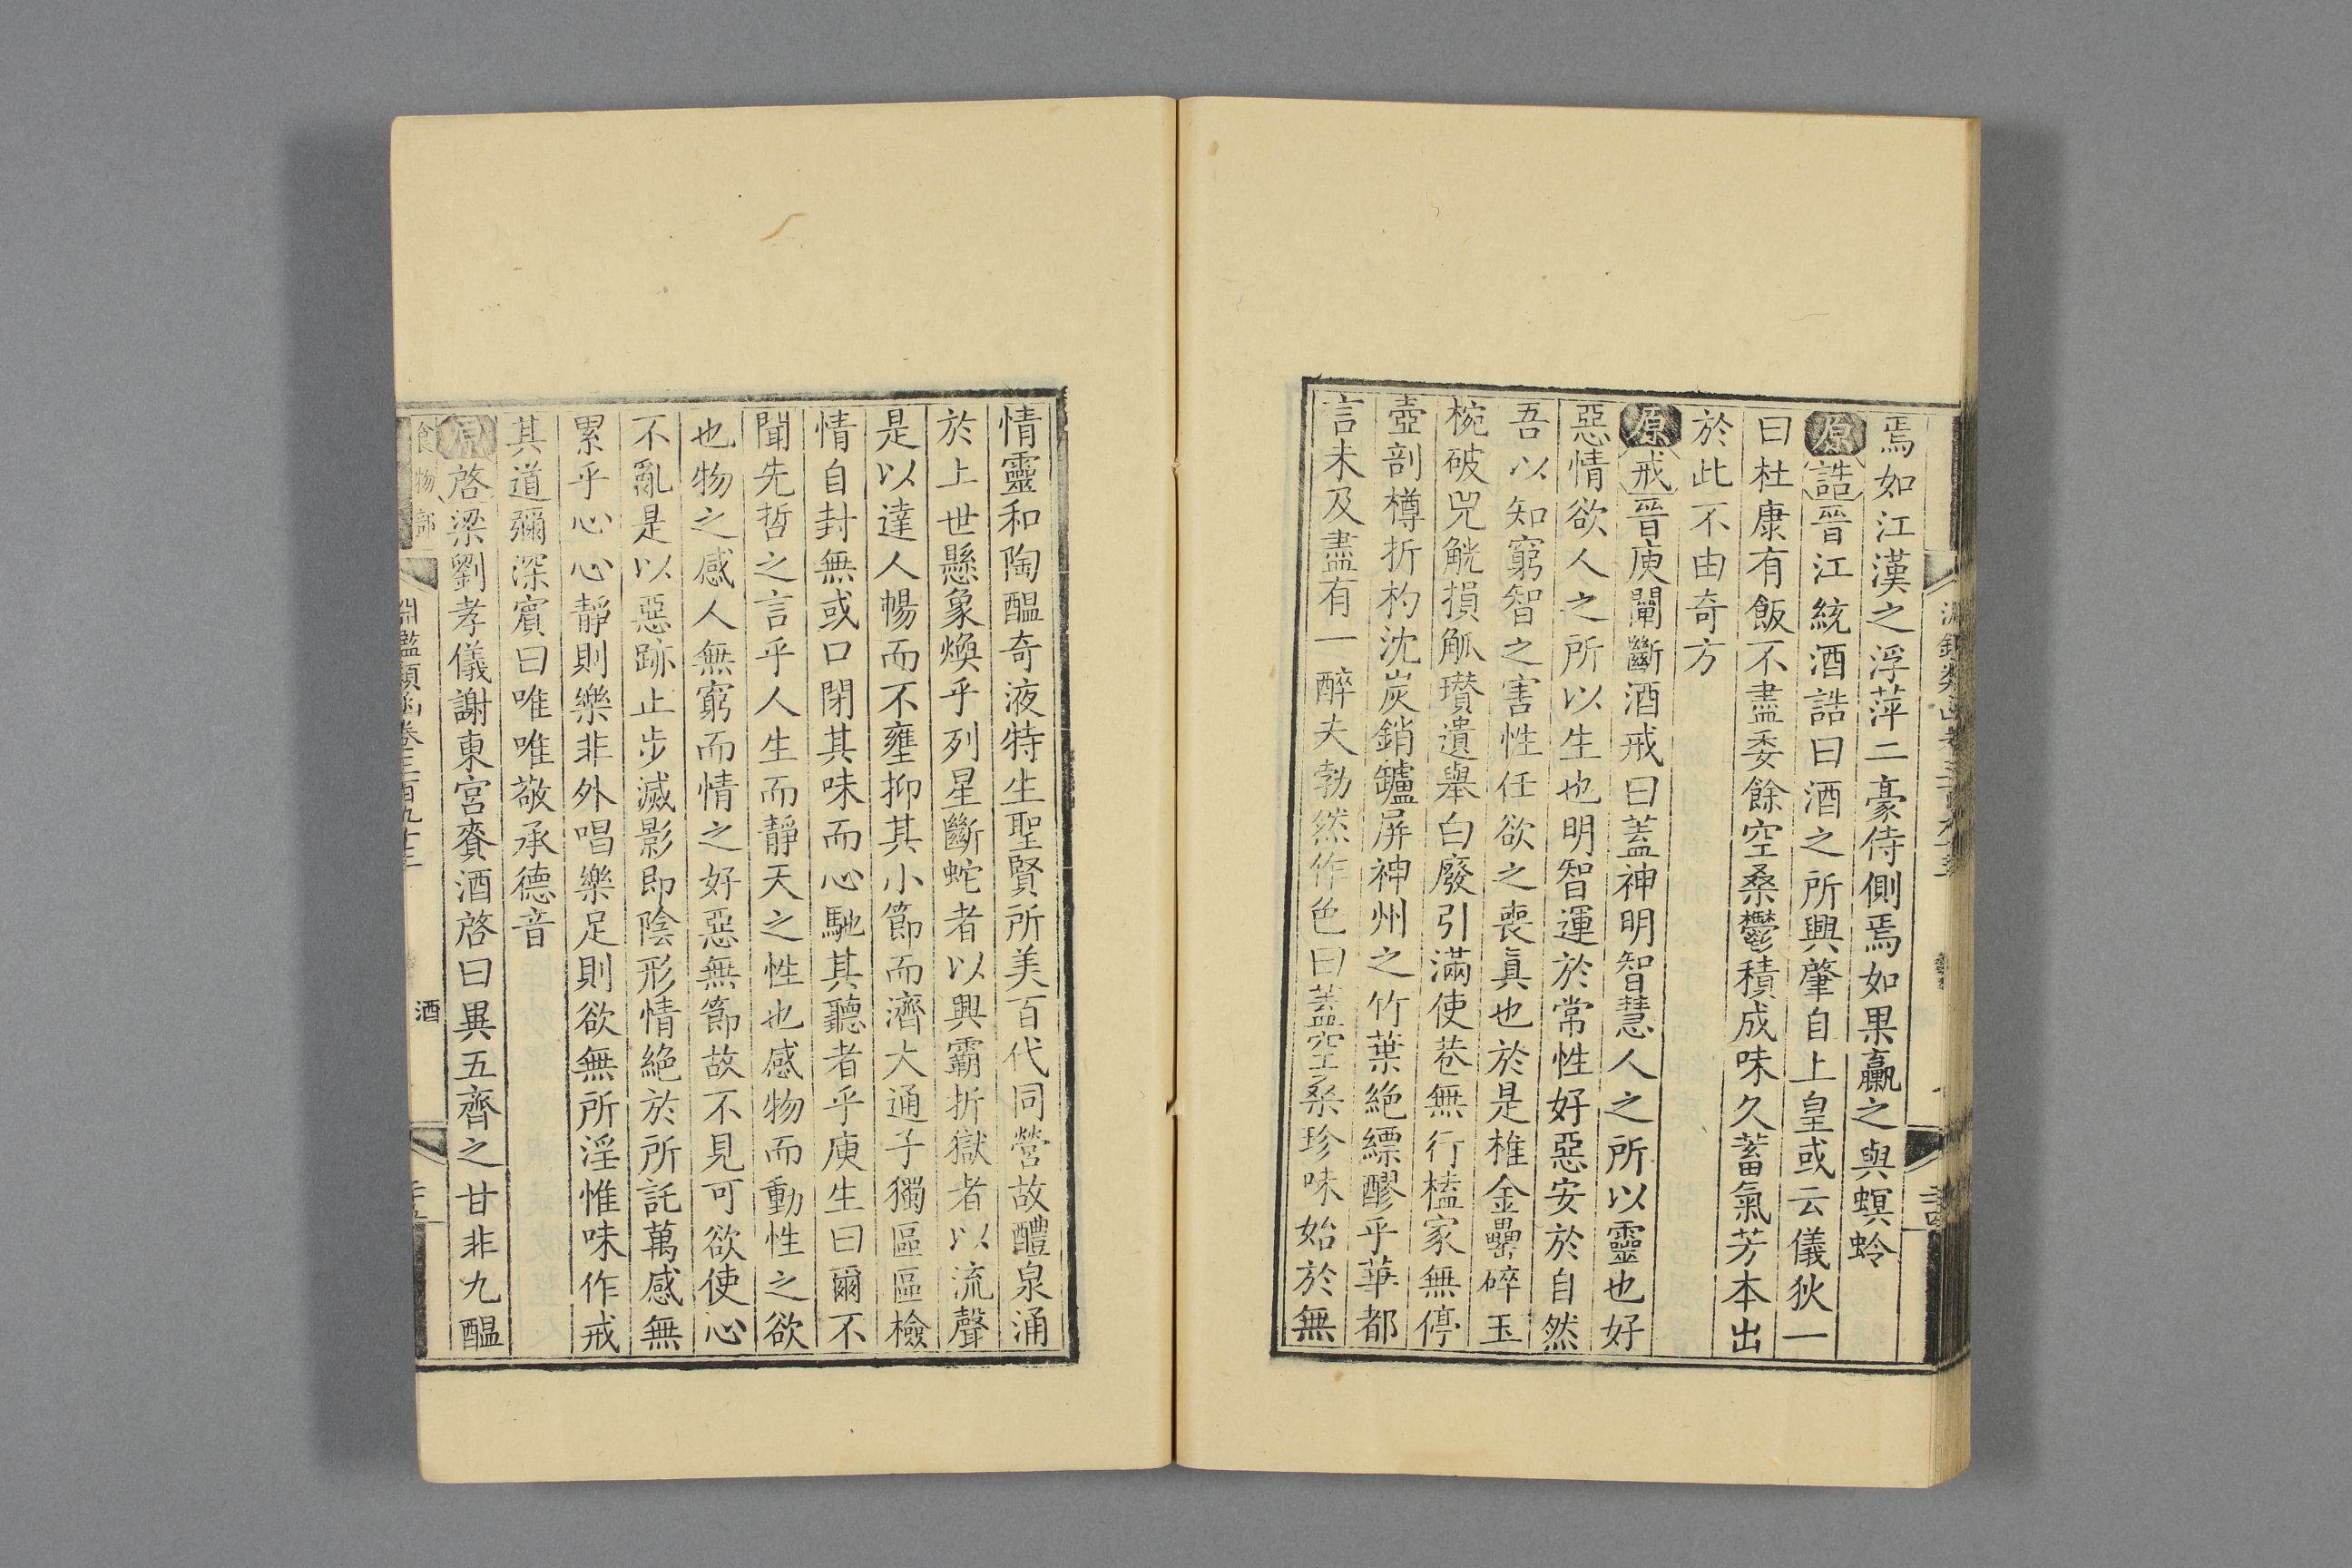 焉如江漢之浮萍二豪侍側焉如果蠃之與螟蛉
原誥晉江統酒誥曰酒之所興肇自上皇或云儀狄一
曰杜康有飯不盡委餘空桑鬱積成味久蓄氣芳本出
於此不由奇方
原戒晉庾闡斷酒戒曰蓋神明智慧人之所以靈也好
惡情欲人之所以生也明智運於常性好惡安於自然
吾以知窮智之害性任欲之喪真也於是椎金罍碎玉
椀破兕觥損觚瓚遺舉白廢引滿使巷無行榼家無停
壺剖樽折杓沈炭銷鑪屏神州之竹葉絕縹醪乎華都
言未及盡有一醉夫勃然作色曰蓋空桑珍味始於無
情靈和陶醞奇液特生聖賢所美百代同營故醴泉涌
於上世懸象煥乎列星斷蛇者以興霸折獄者以流聲
是以達人暢而不壅抑其小節而濟大通子獨區區檢
情自封無或口閉其味而心馳其聽者乎庾生曰爾不
聞先哲之言乎人生而靜天之性也感物而動性之欲
也物之感人無窮而情之好惡無節故不見可欲使心
不亂是以惡跡止步滅影即陰形情絕於所託萬感無
累乎心心靜則樂非外唱樂足則欲無所淫惟味作戒
其道彌深賓曰唯唯敬承德音
原啓梁劉孝儀謝東宮賚酒啓曰異五齊之甘非九醞
食物部
淵鑑類函卷三百九十三
酒